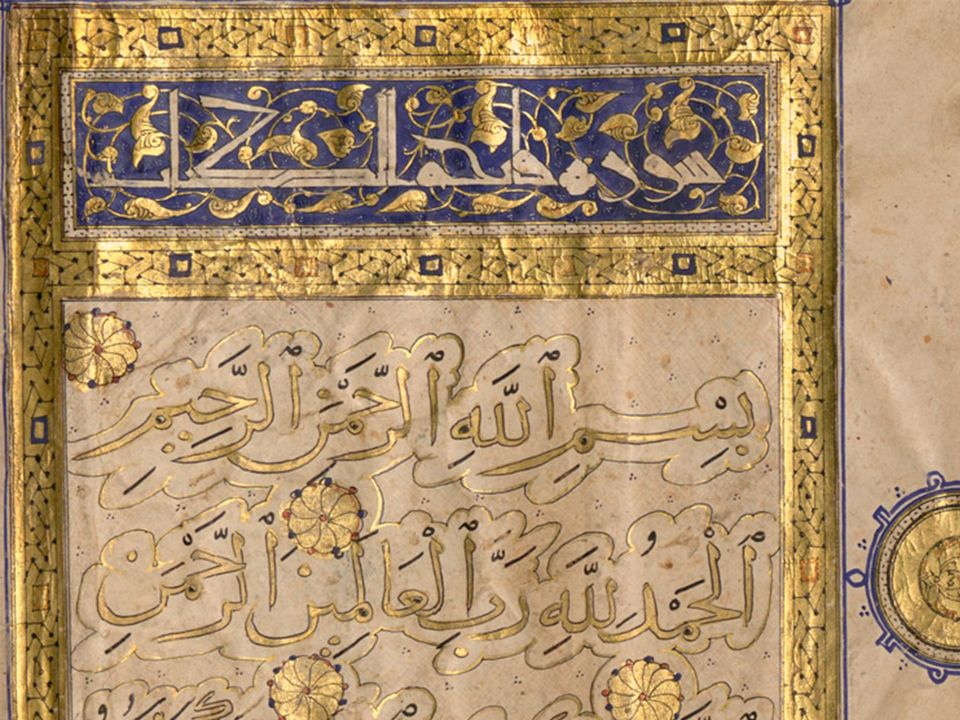 سورة فاتحة الكتاب
بِسْمِ ٱللَّهِ ٱلرَّحْمَٰنِ ٱلرَّحِيمِ
ٱلْحَمْدُ لِلَّهِ رَبِّ ٱلْعَالَمِينَ ٱلرَّحْمَٰنِ